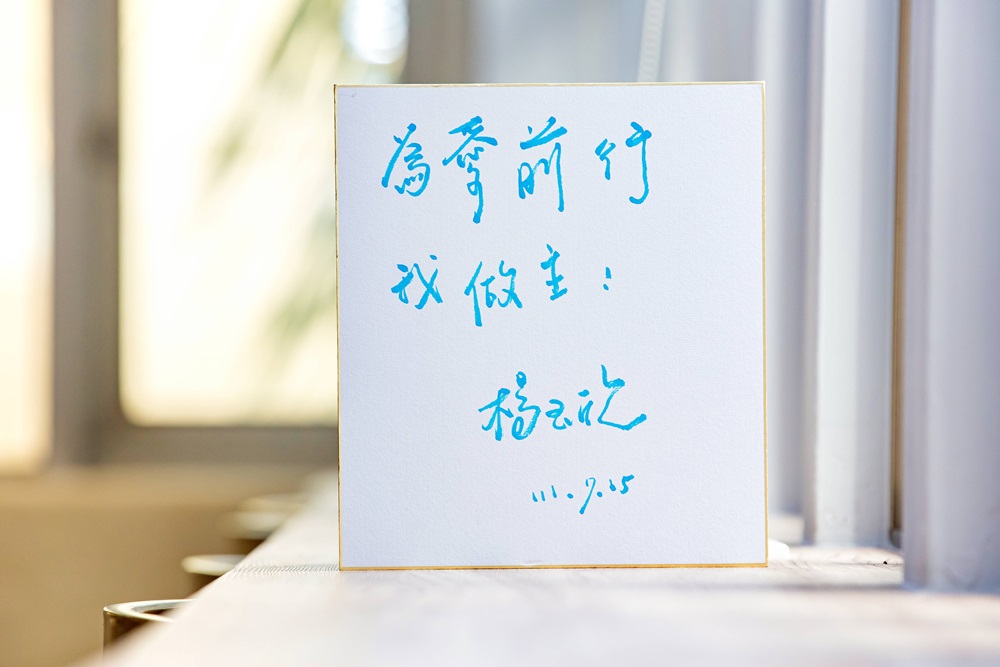 為愛前行
我做主!
楊玉欣
111.9.15